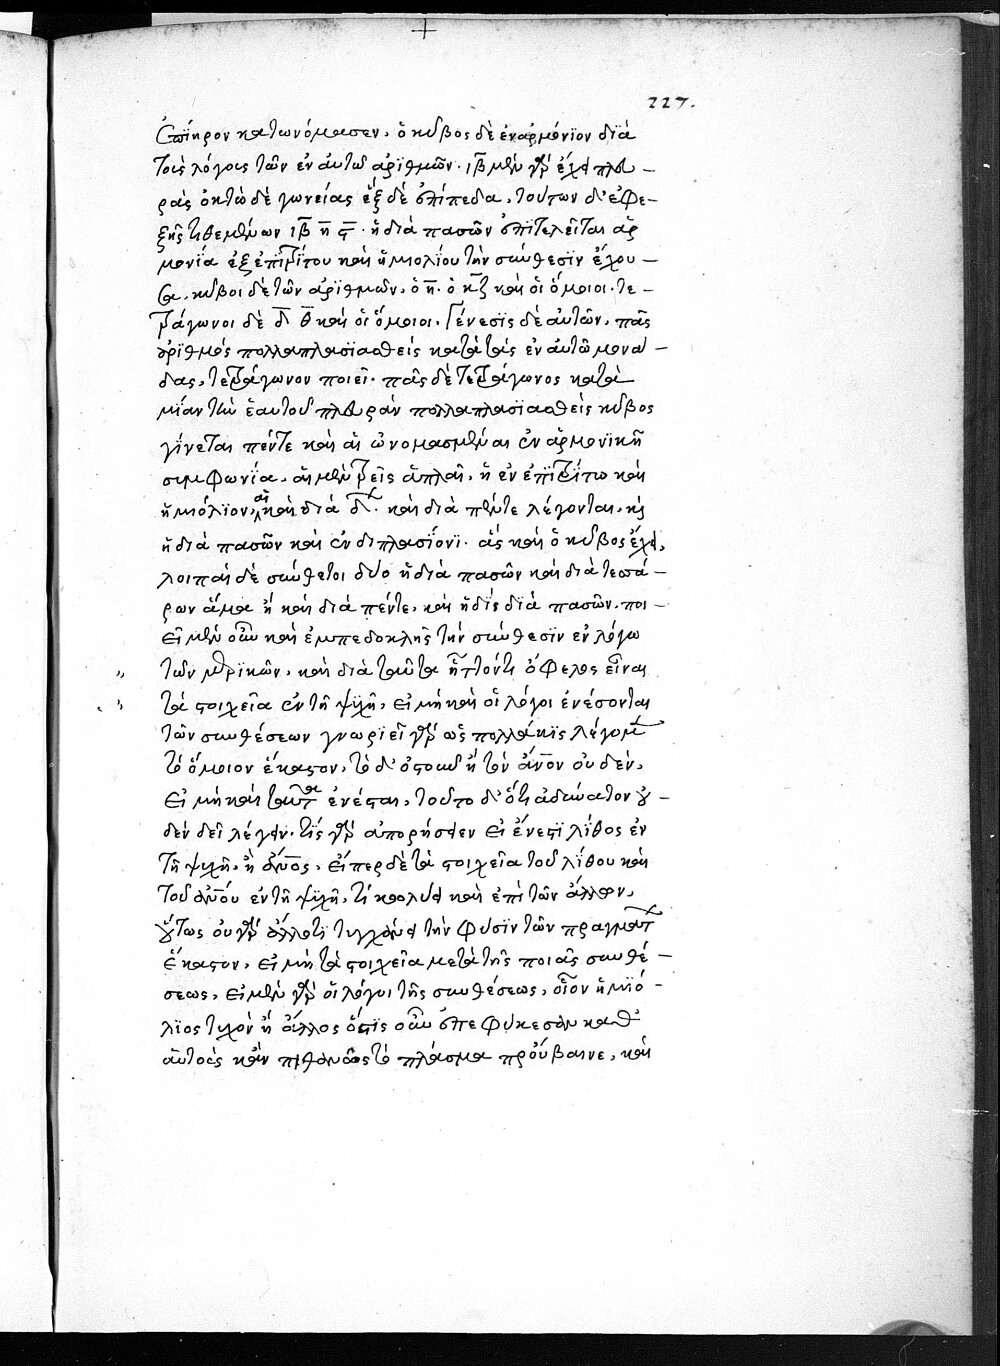 227.
ἐπίηρον κατωνόμασεν, ὁ κύβος δὲ ἐναρμόνιον διὰ
τοὺς λόγους τῶν ἐν αὐτῶ ἀριθμῶν· ιβ μὲν γὰρ ἔχει πλευ –
ρὰς ὀκτὼ δὲ γωνείας ἓξ δὲ ἐπίπεδα, τούτων δ' ἐφε –
ξῆς τιθεμένων ιβ η ς· ἡ διὰ πασῶν ἐπιτελεῖται ἁρ
μονία ἐξ ἐπιτρίτου καὶ ἡμιολίου τὴν σύνθεσιν ἔχου –
σα, κύβοι δὲ τῶν ἀριθμῶν, ὁ η· ὁ κζ καὶ οἱ ὅμοιοι· τε –
τράγωνοι δὲ δ θ καὶ οἱ ὅμοιοι. Γένεσις δὲ αὐτῶν, πᾶς
ἀριθμὸς πολλαπλασιασθεὶς κατὰ τὰς ἐν αὐτῶ μονά –
δας, τετράγωνον ποιεῖ· πᾶς δὲ τετράγωνος κατὰ
μίαν τὴν ἑαυτοῦ πλευρὰν πολλαπλασιασθεὶς κύβος
γίνεται πέντε καὶ αἱ ὠνομασμέναι ἐν ἁρμονικῆ
συμφωνία, αἱ μὲν τρεῖς ἁπλαῖ, ἡ ἐν ἐπιτρίτω καὶ
ἡμιόλιον, αἳ καὶ διὰ δ. καὶ διὰ πέντε λέγονται, καὶ
ἡ διὰ πασῶν καὶ ἐν διπλασίονι· ἃς καὶ ὁ κύβος ἔχει,
λοιπαὶ δὲ σύνθετοι δύο ἡ διὰ πασῶν καὶ διὰ τεσσά –
ρων ἅμα ἢ καὶ διὰ πέντε, καὶ ἡ δὶς διὰ πασῶν. ποι –
εῖ μὲν οὖν καὶ ἐμπεδοκλῆς τὴν σύνθεσιν ἐν λόγω
τῶν μετρικῶν, καὶ διὰ ταῦτα ἧττόν τι ὄφελος εἶναι
τὰ στοιχεῖα ἐν τῆ ψυχῆ, εἰ μὴ καὶ οἱ λόγοι ἐνέσονται
τῶν συνθέσεων γνωριεῖ γὰρ ὡς πολλάκις λέγομεν
τὸ ὅμοιον ἕκαστον, τὸ δ' ὀστοῦν ἢ τὸν ἄνον οὐδέν,
εἰ μὴ καὶ ταῦτα ἐνέσται, τοῦτο δ' ὅτι ἀδύνατον οὐ –
δὲν δεῖ λέγειν· τίς γὰρ ἀπορήσειεν εἰ ἔνεστι λίθος ἐν
τῆ ψυχῆ, ἢ ἄνος, εἴπερ δὲ τὰ στοιχεῖα τοῦ λίθου καὶ
τοῦ ἀνου ἐν τῆ ψυχῆ, τί κωλύει καὶ ἐπὶ τῶν ἄλλων,
οὕτως οὐ γὰρ ἄλλο τι τυγχάνει τὴν φύσιν τῶν πραγμάτων
ἕκαστον, εἰ μὴ τὰ στοιχεῖα μετὰ τῆς ποιᾶς συνθέ –
σεως, εἰ μὲν γὰρ οἱ λόγοι τῆς συνθέσεως, οἷον ἡμιό –
λιος τυχὸν ἢ ἄλλος ὅστις οὖν ἐπεφύκεσαν καθ'
αὑτοὺς κἂν πιθανῶς τὸ πλάσμα προύβαινε, καὶ